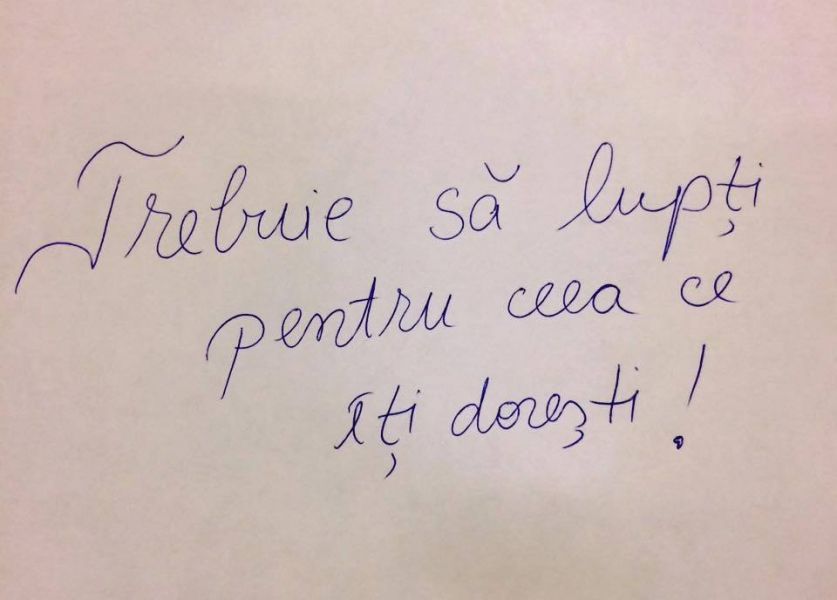 Trebuie să lupți
pentru ceea ce
îți dorești!